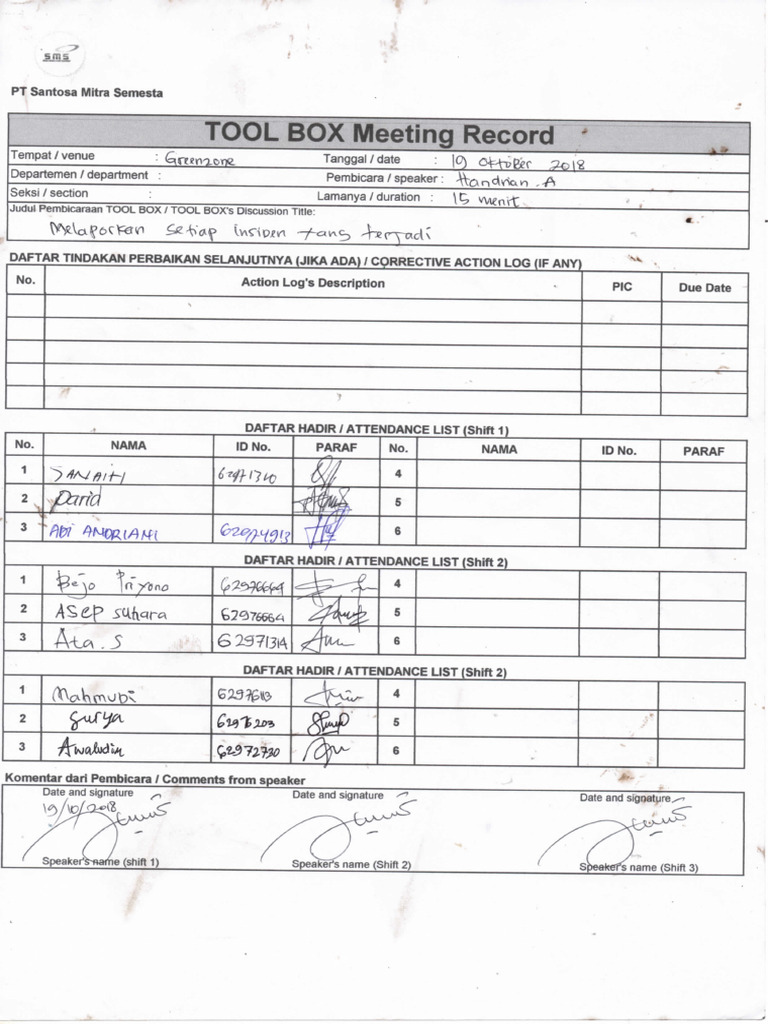 SMS
PT Santosa Mitra Semesta
TOOL BOX Meeting Record
Tempat / venue : Greenzone Tanggal / date : 19 Oktober 2018
Departemen / department : Pembicara / speaker : Handrian.A
Seksi / section : Lamanya / duration : 15 menit
Judul Pembicaraan TOOL BOX / TOOL BOX's Discussion Title:
Melaporkan setiap insiden yang terjadi
DAFTAR TINDAKAN PERBAIKAN SELANJUTNYA (JIKA ADA) / CORRECTIVE ACTION LOG (IF ANY)
No. Action Log's Description PIC Due Date
DAFTAR HADIR / ATTENDANCE LIST (Shift 1)
No. NAMA ID No. PARAF No. NAMA ID No. PARAF
1 62971310 4
2 Darid 5
3 ADI ANDRIANI 62974913 6
DAFTAR HADIR / ATTENDANCE LIST (Shift 2)
1 Bejo Priyono 62976669 4
2 ASEP Suhara 62976664 5
3 Ata.S 62971314 6
DAFTAR HADIR / ATTENDANCE LIST (Shift 2)
1 Mahmubi 62976113 4
2 Surya 62976203 5
3 Awaludin 62972730 6
Komentar dari Pembicara / Comments from speaker
Date and signature Date and signature Date and signature
19/10/2018
Speaker's name (shift 1) Speaker's name (Shift 2) Speaker's name (Shift 3)